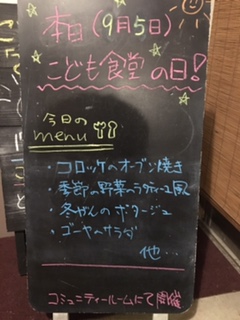 本日(9月5日)
こども食堂の日!
今日の
menu
・コロッケのオーブン焼き
・季節の野菜のラタトゥーユ風
・冬がんのポタージュ
・ゴーヤーサラダ
他…
コミュニティールームにて開催